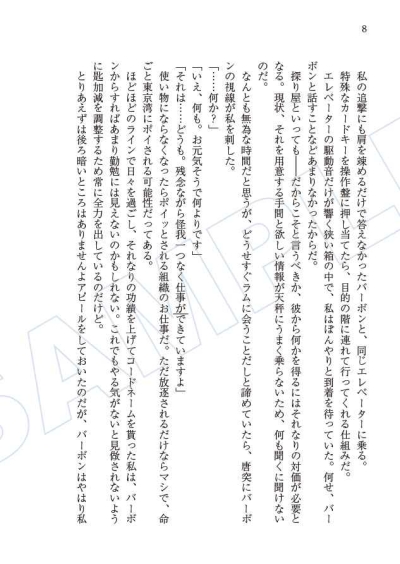 8
私の追撃にも肩を竦めるだけで答えなかったバーボンと、同じエレベーターに乗る。
特殊なカードキーを操作盤に押し当てたら、目的の階に連れて行ってくれる仕組みだ。
エレベーターの駆動音だけが響く狭い箱の中で、私はぼんやりと到着を待っていた。何せ、バー
ボンと話すことなどあまりなかったからだ。
探り屋といっても――だからこそと言うべきか、彼から何かを得るにはそれなりの対価が必要と
なる。現状、それを用意する手間と欲しい情報が天秤にうまく乗らないため、何も聞くに聞けない
のだ。
なんとも無為な時間だと思うが、どうせすぐラムに会うことだしと諦めていたら、唐突にバーボ
ンの視線が私を刺した。
「……何か?」
「いえ、何も。お元気そうで何よりです」
「それは……どうも。残念ながら怪我一つなく仕事ができていますよ」
使い物にならなくなったらポイッとされる組織のお仕事だ。ただ放逐されるだけならマシで、命
ごと東京湾にポイされる可能性だってある。
ほどほどのラインで日々を過ごし、それなりの功績を上げてコードネームを貰った私は、バーボ
ンからすればあまり勤勉には見えないのかもしれない。これでもやる気がないと見做されないよう
に匙加減を調整するため常に全力を出しているのだけど。
とりあえずは後ろ暗いところはありませんよアピールをしておいたのだが、バーボンはやはり私
SAMPLE